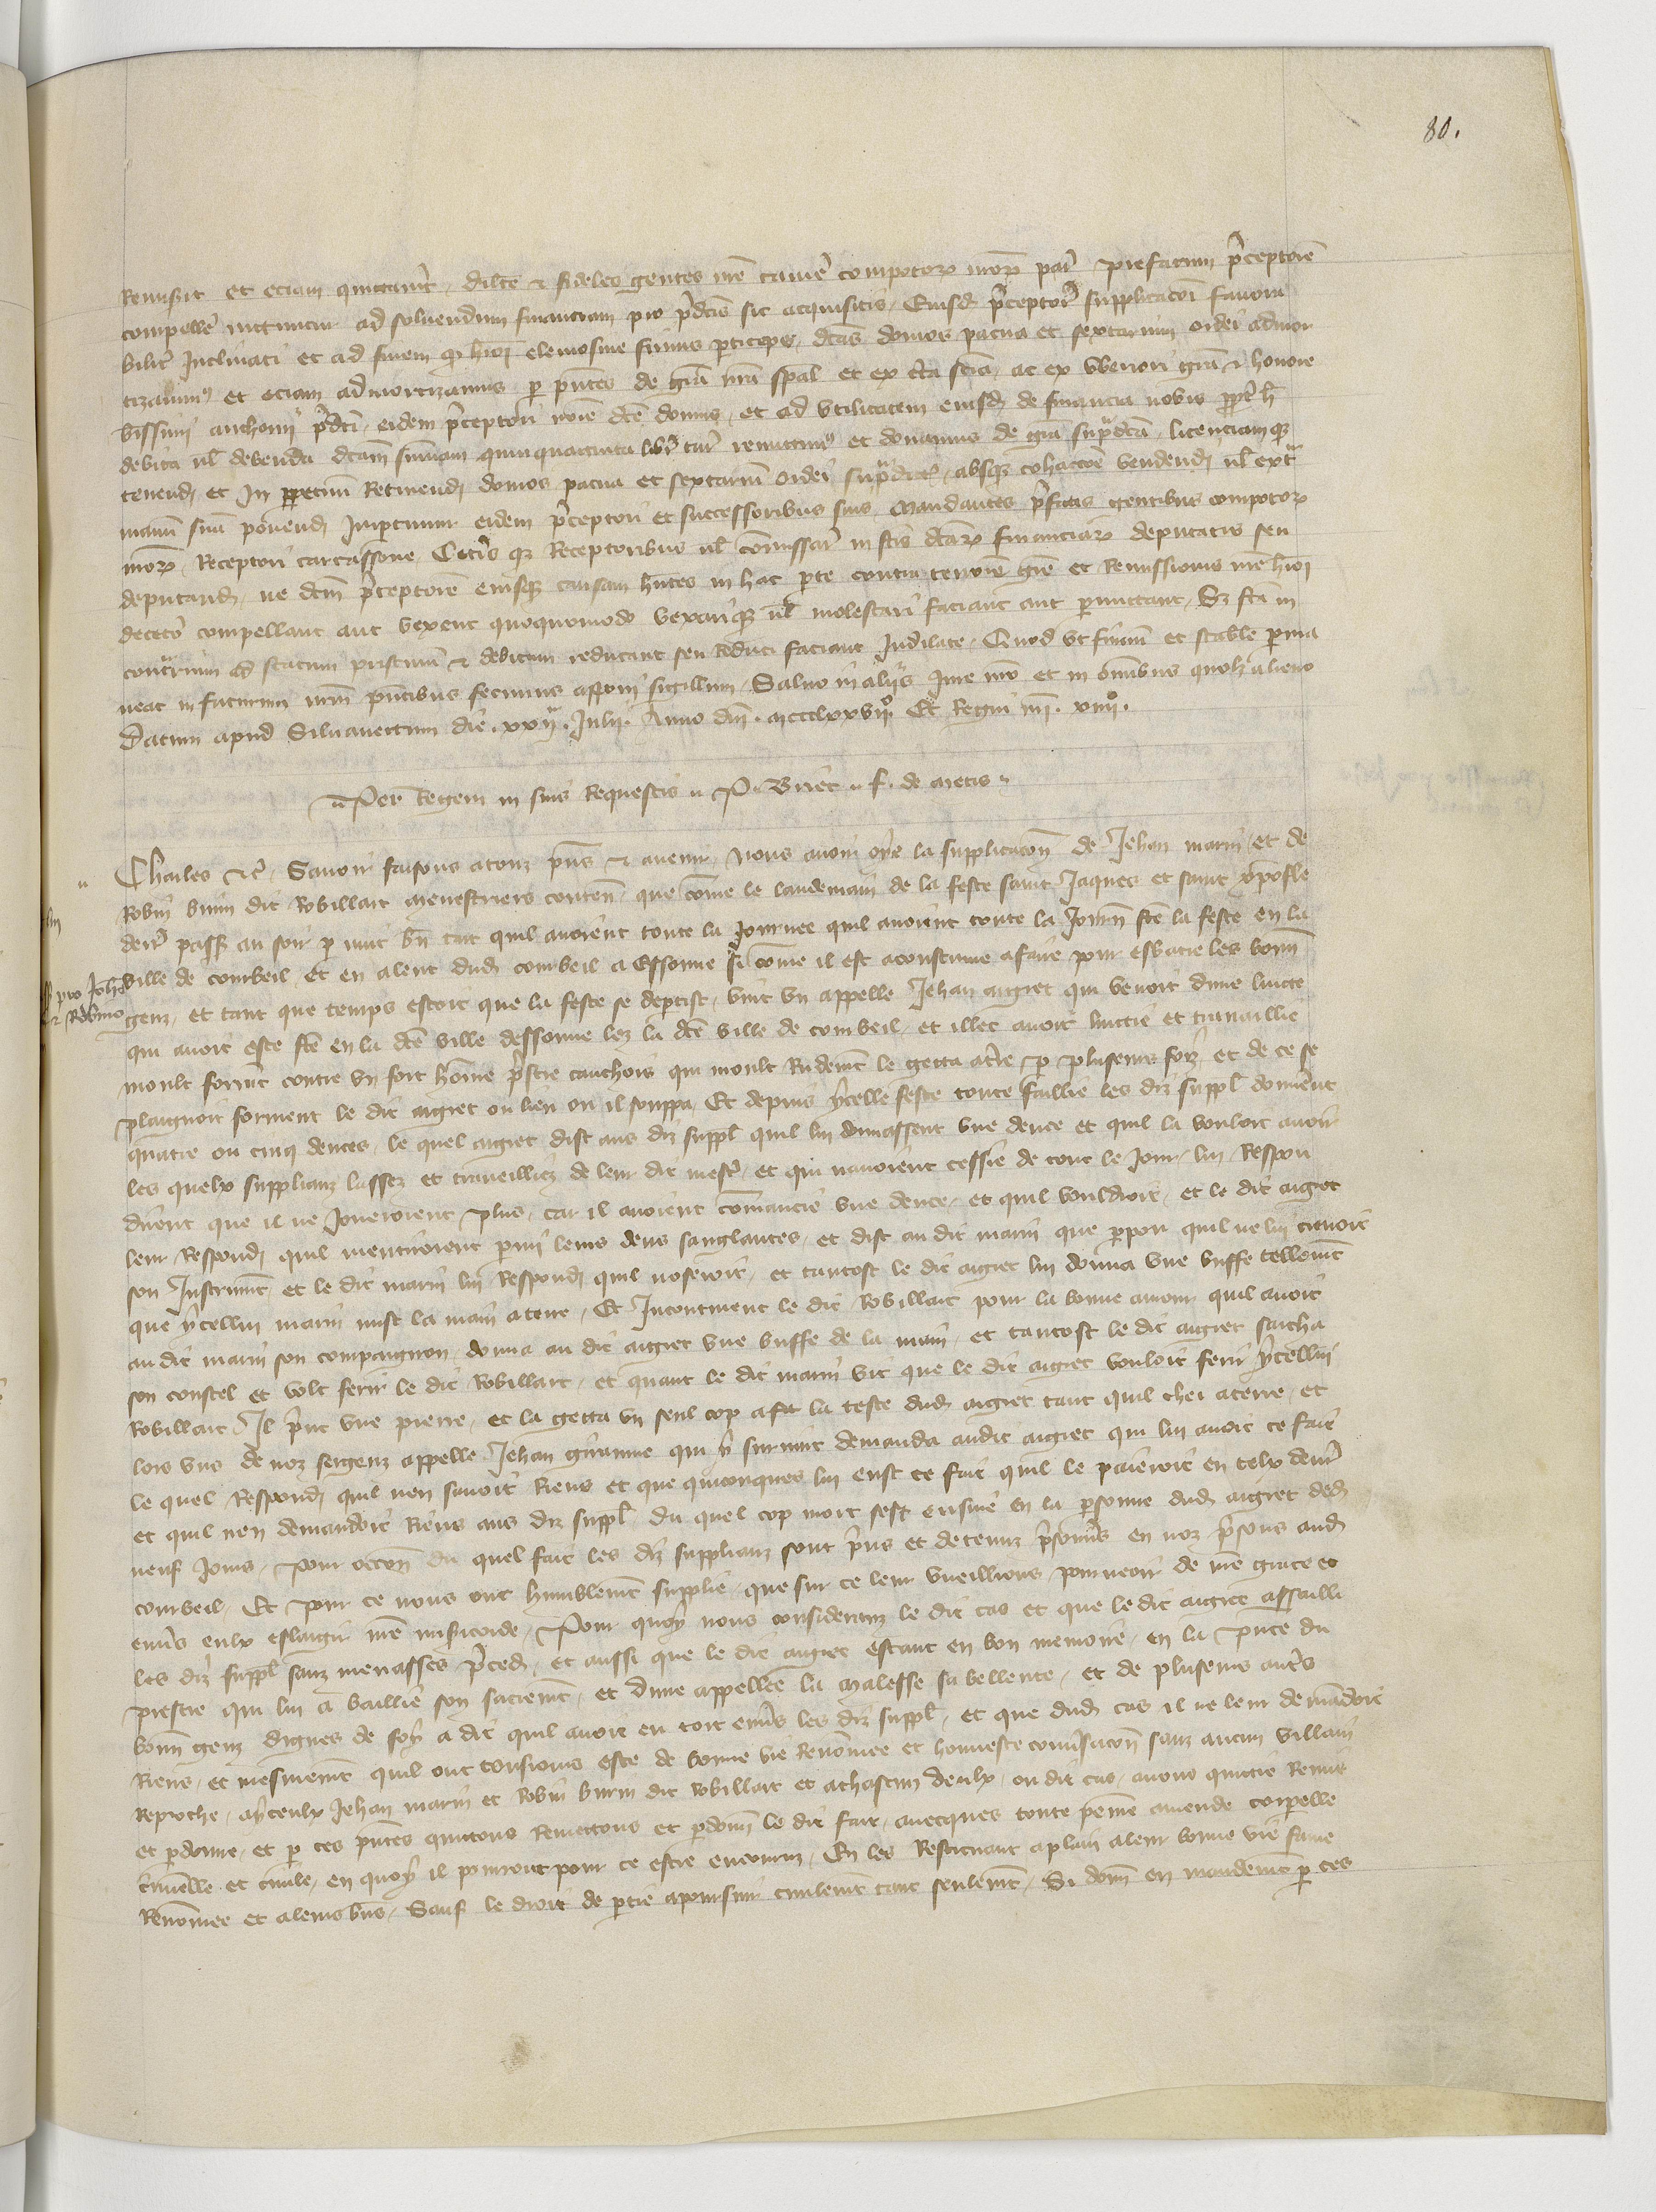 80.
Remisit et eciam quittavit, dilcte & fideles gentes nre camere compotorum nrorum paris prefatum preceptorem
compellere nituntur ad solvendum financiam pro predictis sic acquisitis, Eiusdem preceptoris supplicacoi favora
biliter Inclinati et ad finem quod huiusmodi elemosine simus participes, dictas domos patua et sextarium ordei admor
tizavimus et eciam admortizamus per presentes de gra nra spal et ex certa scia, ac ex uberiori gra & honore
bissimi anthonii predicti, eidem preceptori noie dicte domus, et ad utilitatem eiusdem de financia nobis propter hoc
debita vel debenda dictam summam quinquaginta libr tur remittimus et donamus de gra supradicta, licenciamque
tenendi et In perpetuum Retinendi domos patua et sextarium ordei supradictos, absque cohactione vendendi vel extra
manum suam ponendi Impertimur eidem preceptori et successoribus suis, Mandantes prefatis gentibus compotorum
nrorum, Receptori carcassone Ceterisque Receptoribus vel comissariis in factis dictarum financiarum deputatis seu
deputandis, ne dictum preceptorem eiusque causam hentes in hac parte contra tenorem gre et Remissionis nre huiusmodi
decetero compellant aut vexent quoquomodo vexarique vel molestari faciant aut permittant, Sed facta in
contrarium ad statum pristinum & debitum reducant seu Reduci faciant Indilate, Quod ut firmum et stabile perma
neat in futurum nrum presentibus fecimus apponi sigillum, Salvo in aliis Iure nro et in omnibus quolibet alieno
Datum apud Silvanectum die. xxii. Julii. Anno dni. mccclxxvii°. Et Regni nri. xiiii°.
Per Regem in suis Requestis .. P. Briet .. f. de Metis ..
Charles &c, Savoir faisons atouz presens & avenir, Nous avoir oye la supplicacon de Jehan marin, et de
Robin Brun dit Robillart Menestriers contenant, que come le landemain de la feste saint Jaques et saint xpofle
derr passe au soir par nuit bn tart quil avoient toute la Journee quil avoient toute la Journ fte la feste en la
pro Joh ville de corbeil, et en alent dud corbeil a Essonne si come il est acoustume a faire pour esbatre les bonn
& Robino genz, et tant que temps estoit que la feste se departist, vint un appelle Jehan aigret qui venoit dune luicte
qui avoit este fte en la dte ville dessonne lez la dte ville de corbeil, et illec avoit luictie et travaillie
moult forment contre un fort homme prestre cauchois qui moult Rudement le getta atrre par pluseurs foiz, et de ce se
plaignoit forment le dit aigret ou lieu ou il souppa, Et depuis ycelle feste toute faillie les diz suppl donnerent
quatre ou cinq dences, le quel aigret dist aus diz suppl quil lui donnassent une dence et quil la vouloit avoir
les quelx supplianz lassez et traveilliez de leur dit mest, et qui navoient cessie de tout le Jour, lui Respon
dirent que il ne Joueroient plus, car il avoient comancie une dence, et quil vouldroit, et le dit aigret
leur Respondi quil mentiroient parmi leurs dens sanglantes, et dist au dit marin que parpou quil ne lui crevoit
son Instrument, et le dit marin lui Respondi quil noseroit, et tantost le dit aigret lui donna une buffe tellement
que ycellui marin mist la main a terre, Et Incontinent le dit Robillart pour la bonne amour quil avoit
au dit marin son compaignon, donna au dit aigret une buffe de la main, et tantost le dit aigret sacha
son coustel et volt ferir le dit Robillart, et quant le dit marin vit que le dit aigret vouloit ferir ycellui
Robillart, Il print une pierre, et la getta un seul cop a la teste dud aigret tant quil chei a terre, et
lors uns de noz sergenz appelle Jehan giranne qui y survint demanda audit aigret qui lui avoit ce fait
le quel Respondi quil nen savoit Riens et que quiconques lui eust ce fait quil le paieroit en telx deniers
et quil nen demandoit Riens aus diz suppl, du quel cop mort sest ensuie en la personne dud aigret ded
neuf Jours, Pour occon du quel fait les diz supplianz sont prins et detenuz prisonniers en noz prisons aud
corbeil, Et pour ce nous ont humblement supplie, que sur ce leur vueillions pourveoir de nre grace et
envers eulx eslargir nre misericorde, Pour quoy nous considerans le dit cas et que le dit aigret assailli
les diz suppl sanz menasses preced, et aussi que le dit aigret estant en bon memoire, en la presence du
prestre qui lui a baillie son sacrement, et dune appellee la Malesse sa bellente, et de pluseurs autres
bonn genz dignes de foy a dit quil avoit eu tort envers les diz suppl, et que dud cas il ne leur demandoit
Riens, et mesmement quil ont tousiours este de bonne vie Renommee et honneste conversacon sanz aucun villain
Reproche, ayceulx Jehan marin et Robin Burn dit Robillart et achascun deulx, ou dit cas, avons quictie Remis
et pardonne, et par ces presentes quittons Remettons et pardonn le dit fait, avecques toute peine amende corporelle
criminelle et civile, en quoy il pourront pour ce estre encouruz, En les Restituant aplain aleur bonne vie fame
Renommee et aleurs biens, Sauf le droit de partie apoursuir civilement tant seulement, Si donn en mandement par ces